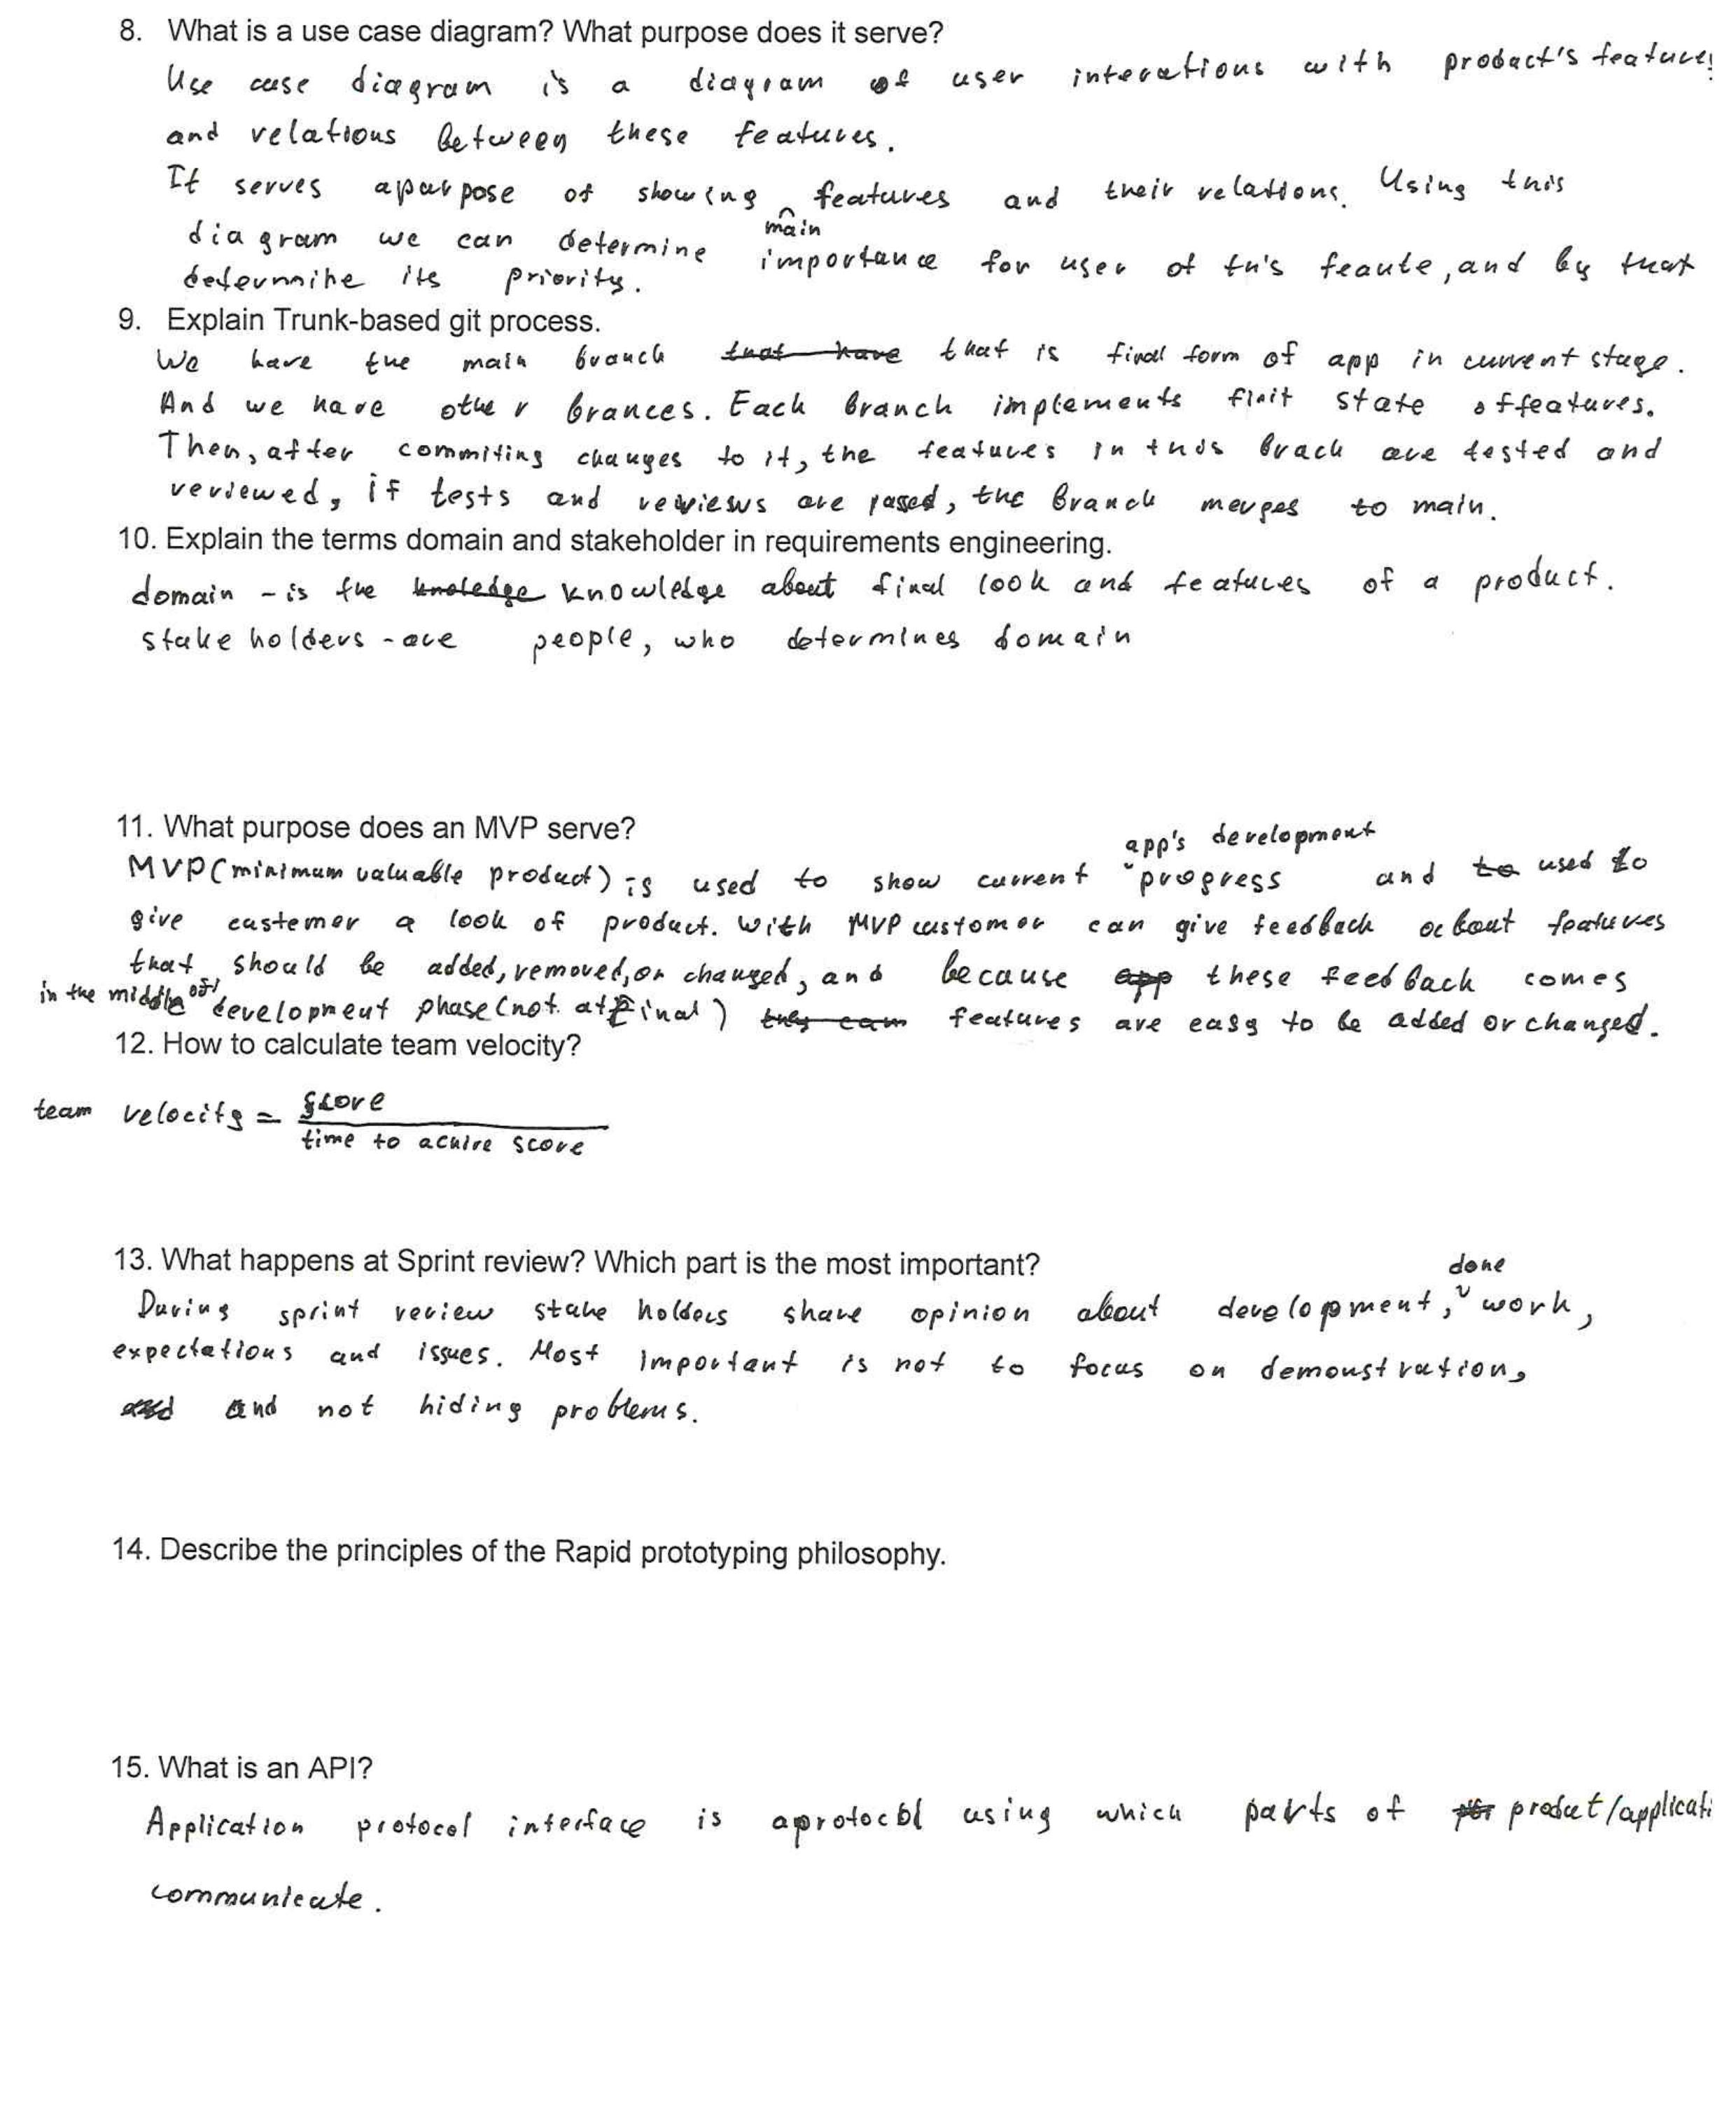 8. What is a use case diagram? What purpose does it serve?
Use case diagram is a diagram of user interations with product's features
and relations between these features.
It serves apurpose of showing main features and their relations. Using this
diagram we can determine importance for user of th's feaute, and by that
determine its priority.
9. Explain Trunk-based git process.
We have the main branch ~~that have~~ that is final form of app in current stage.
And we have other brances. Each branch implements finit state of features.
Then, after commiting changes to it, the features in this brach are tested and
reviewed, if tests and reviews are passed, the branch merges to main.
10. Explain the terms domain and stakeholder in requirements engineering.
domain - is the ~~knoledge~~ knowledge about final look and features of a product.
stake holders - are people, who determines domain
11. What purpose does an MVP serve?
MVP (minimum valuable product) is used to show current app's development progress and ~~to~~ used to
give custemer a look of product. With MVP customer can give feedback about features
that should be added, removed, or changed, and because ~~app~~ these feedback comes
in the middle of development phase (not at final) ~~they can~~ features are easy to be added or changed.
12. How to calculate team velocity?
team velocity = score
time to acuire score
13. What happens at Sprint review? Which part is the most important?
During sprint review stake holders share opinion about development, done work,
expectations and issues. Most important is not to focus on demonstration,
~~and~~ and not hiding problems.
14. Describe the principles of the Rapid prototyping philosophy.
15. What is an API?
Application protocol interface is aprotocol using which parts of product/applicati
communicate.